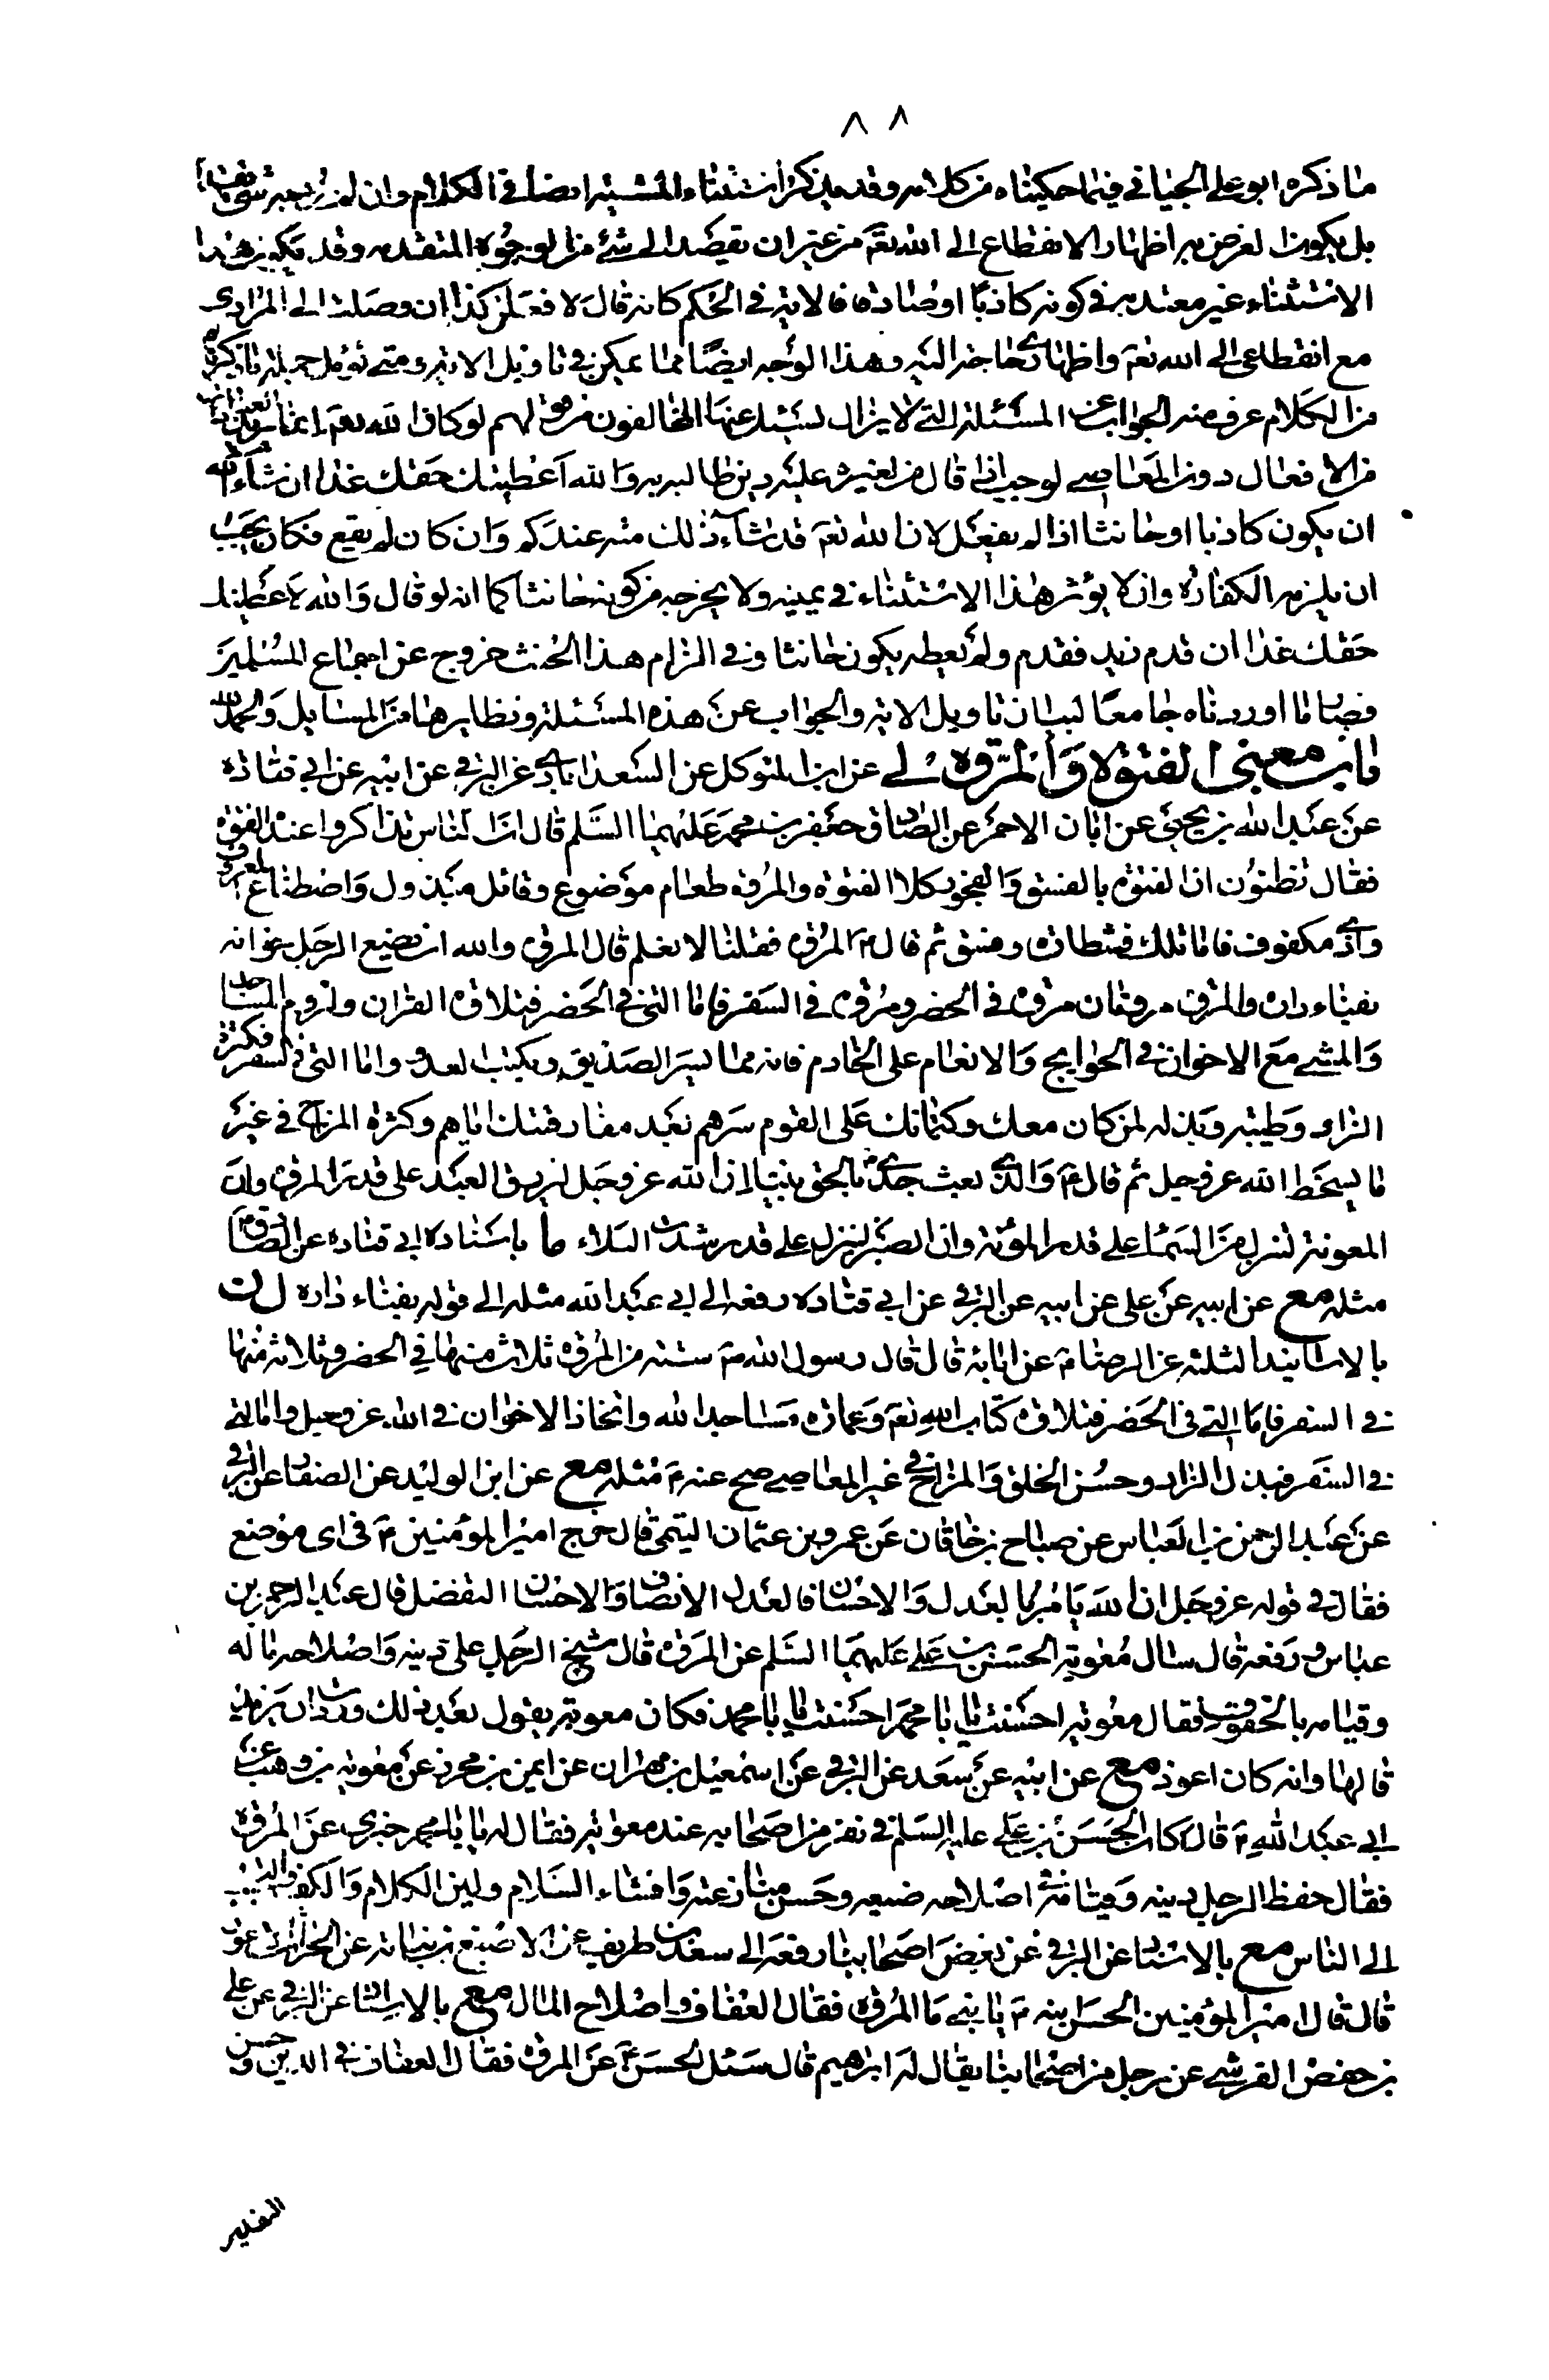 ٨٨
ما ذكره ابو علي الجبائي فيما حكيناه من كلامه وقد يذكر استثناء المشية ايضا في الكلام وان لم يرد به شئ مما تقدم
بل يكون الغرض به اظهار الانقطاع الى الله تعم من غير ان يقصد الى شئ من الوجوه المتقدمه وقد يكون هذا
الاستثناء غير معتد به في كونه كاذبا او صادقا لانه في الحكم كانه قال لافعلن كذا ان وصلت الى المرادي
مع انقطاعي الى الله تعم واظهاري الحاجة اليه وهذا الوجه ايضًا مما يمكن في تاويل الاية ومتى تؤمل جملة ما ذكرناه
من الكلام عرف منه الجواب عن المسئلة التي لا يزال يسئل عنها المخالفون من قولهم لو كان الله تعم انما يريد
من الافعال دون المعاصي لوجب اذا قال من لغيره عليه دين طالبه به والله اعطينك حقك غدا ان شاء الله
ان يكون كاذبا او حانثا اذا لم يفعل لان الله تعم قد شاء ذلك منه عندكم وان كان لم يقع فكان يجب
ان يلزمه الكفارة وان لا يؤثر هذا الاستثناء في يمينه ولا يخرجه من كونه حانثا كما انه لو قال والله لاعطينك
حقك غدا ان قدم زيد فقدم ولم يعطه يكون حانثا وفي الزام هذا الحنث خروج عن اجماع المسلمين
فصار ما اوردناه جامعًا لبيان تاويل الاية والجواب عن هذه المسئلة ونظايرها من المسايل والحمد لله
باب معنى الفتوة والمروة لي عن ابن المتوكل عن السعدابادي عن البرقي عن ابيه عن ابي قتادة
عن عبد الله بن يحيى عن ابان الاحمر عن الصادق جعفر بن محمد عليهما السلم قال ان الناس تذاكروا عنده الفتوة
فقال تظنون ان الفتوة بالفسق والفجور كلا الفتوة والمروة طعام موضوع ونائل مبذول واصطناع المعروف
واذى مكفوف فاما تلك فشطارة وفسق ثم قال ما المروة فقلنا لا نعلم قال المروة والله ان يضع الرجل خوانه
بفناء داره والمروة مروتان مروة في الحضر ومروة في السفر فاما التي في الحضر فتلاوة القران ولزوم المساجد
والمشي مع الاخوان في الحوايج والانعام على الخادم فانه مما يسر الصديق ويكبت العدو واما التي في السفر فكثرة
الزاد وطيبه وبذله لمن كان معك وكتمانك على القوم سرهم بعد مفارقتك اياهم وكثرة المزاح في غير
ما يسخط الله عز وجل ثم قال ع والذي بعث جدي ص بالحق نبيا ان الله عز وجل ليرزق العبد على قدر المروة وان
المعونة لتنزل من السماء على قدر المؤنة وان الصبر لينزل على قدر شدة البلاء ما باسناده ابي قتاده عن الصادق ع
مثله مع عن ابيه عن علي عن ابيه عن البرقي عن ابي قتاده رفعه الى ابي عبد الله مثله الى قوله بفناء داره ل ن
بالاسانيد الثلثة عن الرضا ع عن ابائه قال قال رسول الله ص ستة من المروة ثلاث منها في الحضر وثلاثة منها
في السفر فاما التي في الحضر فتلاوة كتاب الله تعم وعمارة مساجد الله واتخاذ الاخوان في الله عز وجل واما التي
في السفر فبذل الزاد وحسن الخلق والمزاح في غير المعاصي صح عنه ع مثله مع عن ابن الوليد عن الصفار عن البرقي
عن عبد الرحمن بن العباس عن صباح بن خاقان عن عمرو بن عثمان التيمي قال خرج امير المؤمنين ع
فقال في قوله عز وجل ان الله يامر بالعدل والاحسان فالعدل الانصاف والاحسان التفضل قال عبد الرحمن بن
عباس ورفعه قال سال معوية الحسن بن علي عليهما السلم عن المروة قال شح الرجل على دينه واصلاحه ماله
وقيامه بالحقوق فقال معوية احسنت يا با محمد احسنت يا با محمد فكان معوية يقول بعد ذلك وددت ان يزيد
قالها وانه كان اعور مع عن ابيه عن سعد عن البرقي عن اسمعيل بن مهران عن ايمن بن محرز عن معوية بن وهب عن
ابي عبد الله ع قال كان الحسن بن علي عليه السلم في نفر من اصحابه عند معوية فقال له يا با محمد خبرني عن المروة
فقال حفظ الرجل دينه وقيامه في اصلاح ضيعته وحسن منازعته وافشاء السلام ولين الكلام والكف والتحبب
الى الناس مع بالاسناد عن البرقي عن بعض اصحابنا رفعه الى سعد بن طريف عن الاصبغ بن نباته عن الحارث الاعور
قال قال امير المؤمنين للحسن ابنه ع يا بني ما المروة فقال العفاف واصلاح المال مع بالاسناد عن البرقي عن علي
بن حفص القرشي عن رجل من اصحابنا يقال له ابراهيم قال سئل الحسن ع عن المروة فقال العفاف في الدين وحسن
التقدير